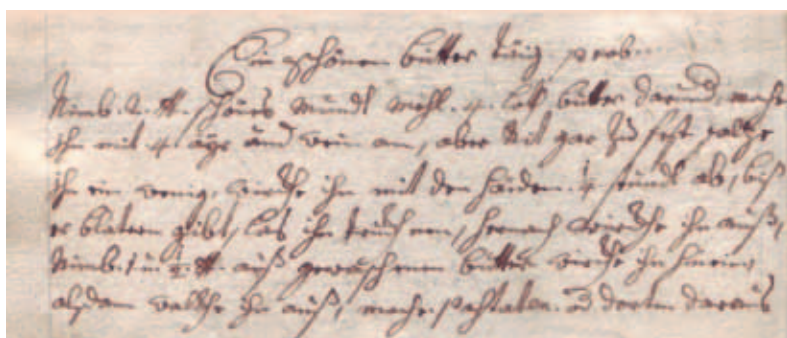 Ein schönen butter taig prob
Nimb 2 ℔ schöns mundt mehl 4 loth butter darund, mache
ihn mit 4 ayr und wein an, aber nit gar zu fest, saltze
ihn ein wenig, wirckhe ihn mit den händen ¼ stundt ab, biß
er blatern gibt, las ihn, hernach ihn auß,
Nimb auß gewaschenen butter ihn hinein,
alsdan walckhe ihn auß, mache pastaten daraus